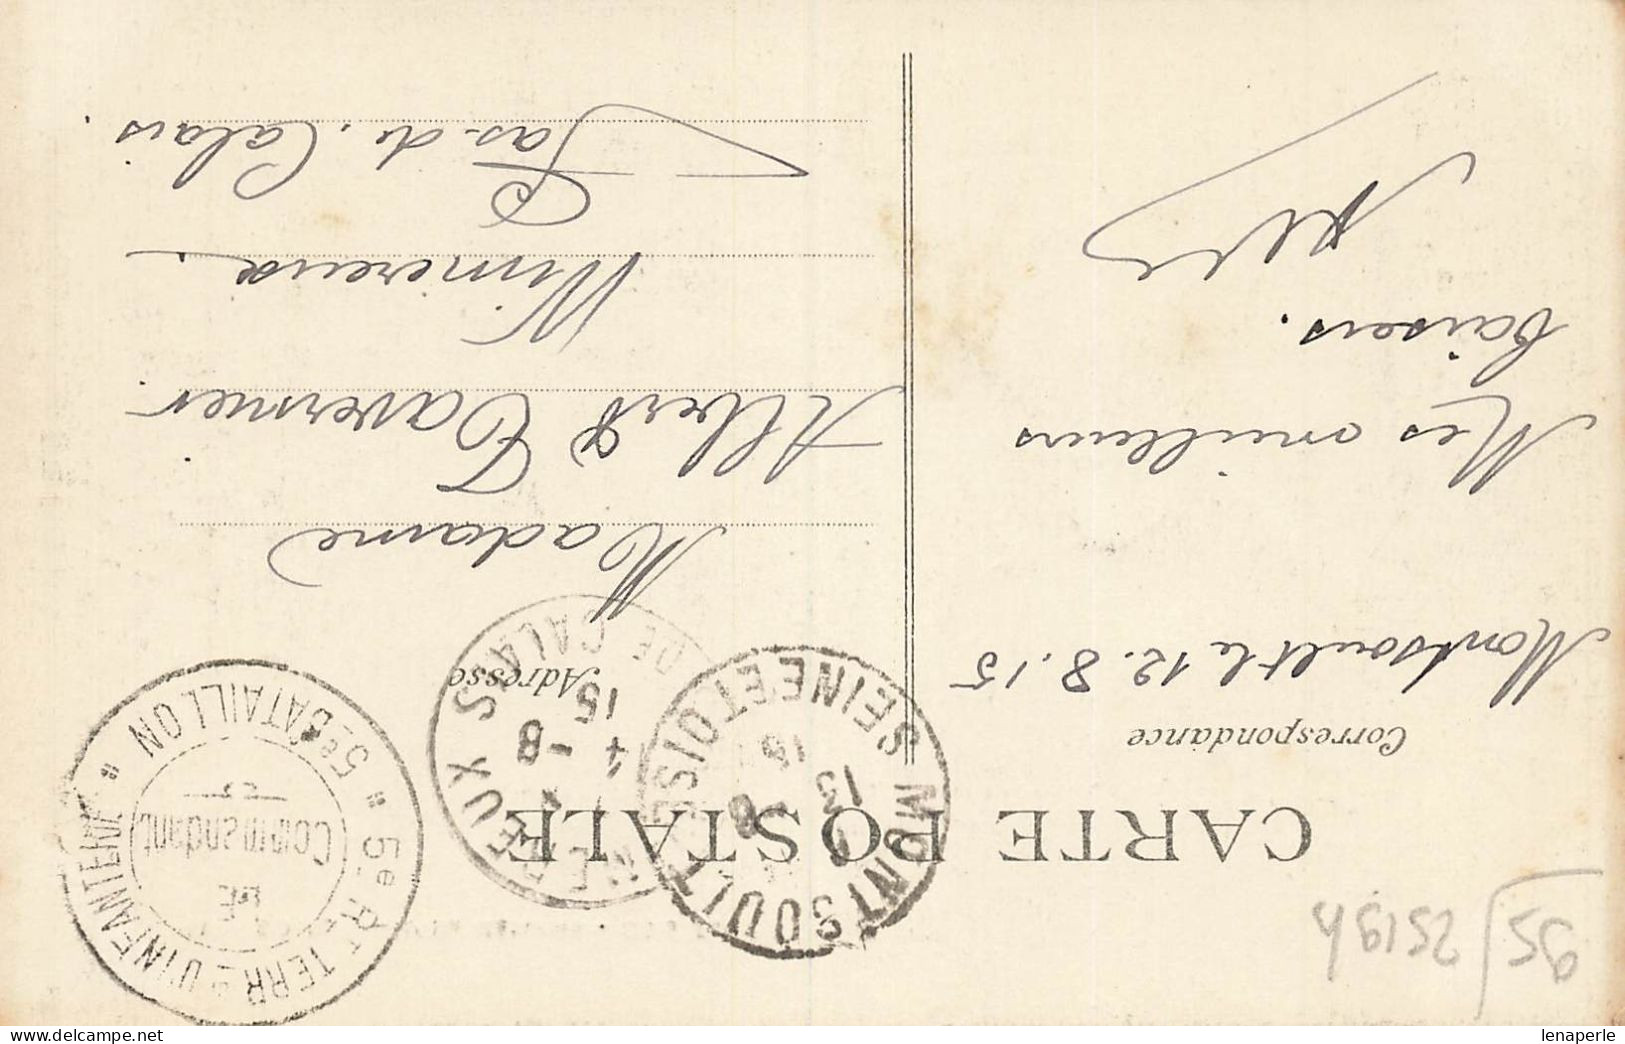 CARTE POSTALE
Correspondance
Montsoult le 12.8.15
Mes meilleurs
baisers.
Adresse
Madame
Albert Tavernier
Wimereux.
Pas-de-Calais.
MONTSOULT SEINE ET OISE
13
DE CALAIS
4 -8
15
5e Rt TERRal D'INFANTERIE " 5e BATAILLON "
LE
Commandant
95/ 25194
lenaperle